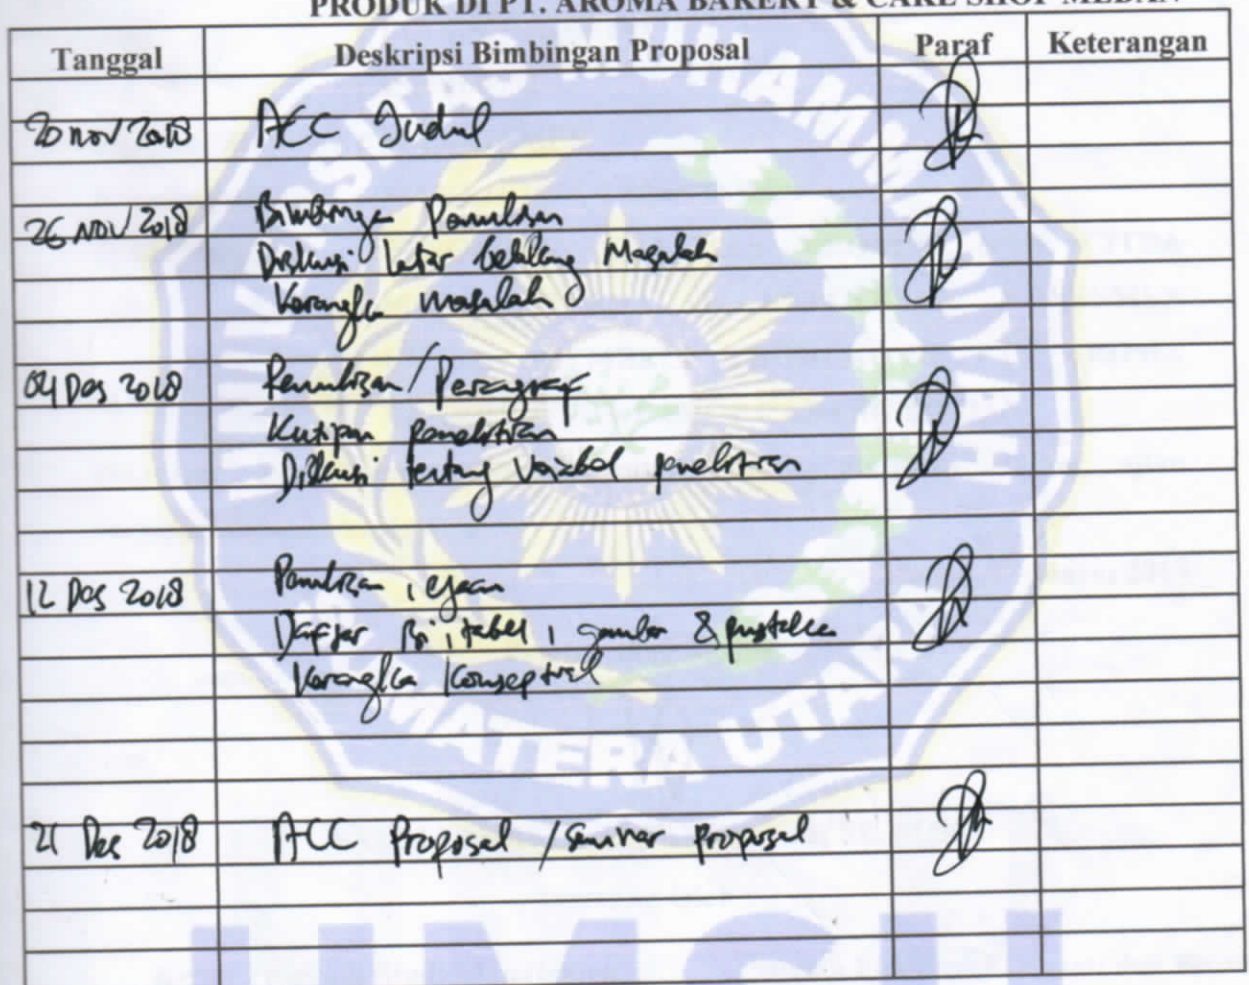 PRODUK DI PT. AROMA BAKERY & CAKE SHOP MEDAN
Tanggal Deskripsi Bimbingan Proposal Paraf Keterangan
20 nov 2018 ACC Judul
26 NOV 2018 Bimbingan Penulisan
Diskusi latar belakang Masalah
Kerangka masalah
04 Des 2018 Penulisan / Paragraf
Kutipan penelitian
Diskusi tentang Variabel penelitian
12 Des 2018 Penulisan, ejaan
Daftar isi, tabel, gambar & pustaka
Kerangka Konseptual
21 Des 2018 ACC Proposal / Seminar proposal
UNIVERSITAS MUHAMMADIYAH
SUMATERA UTARA
UMSU